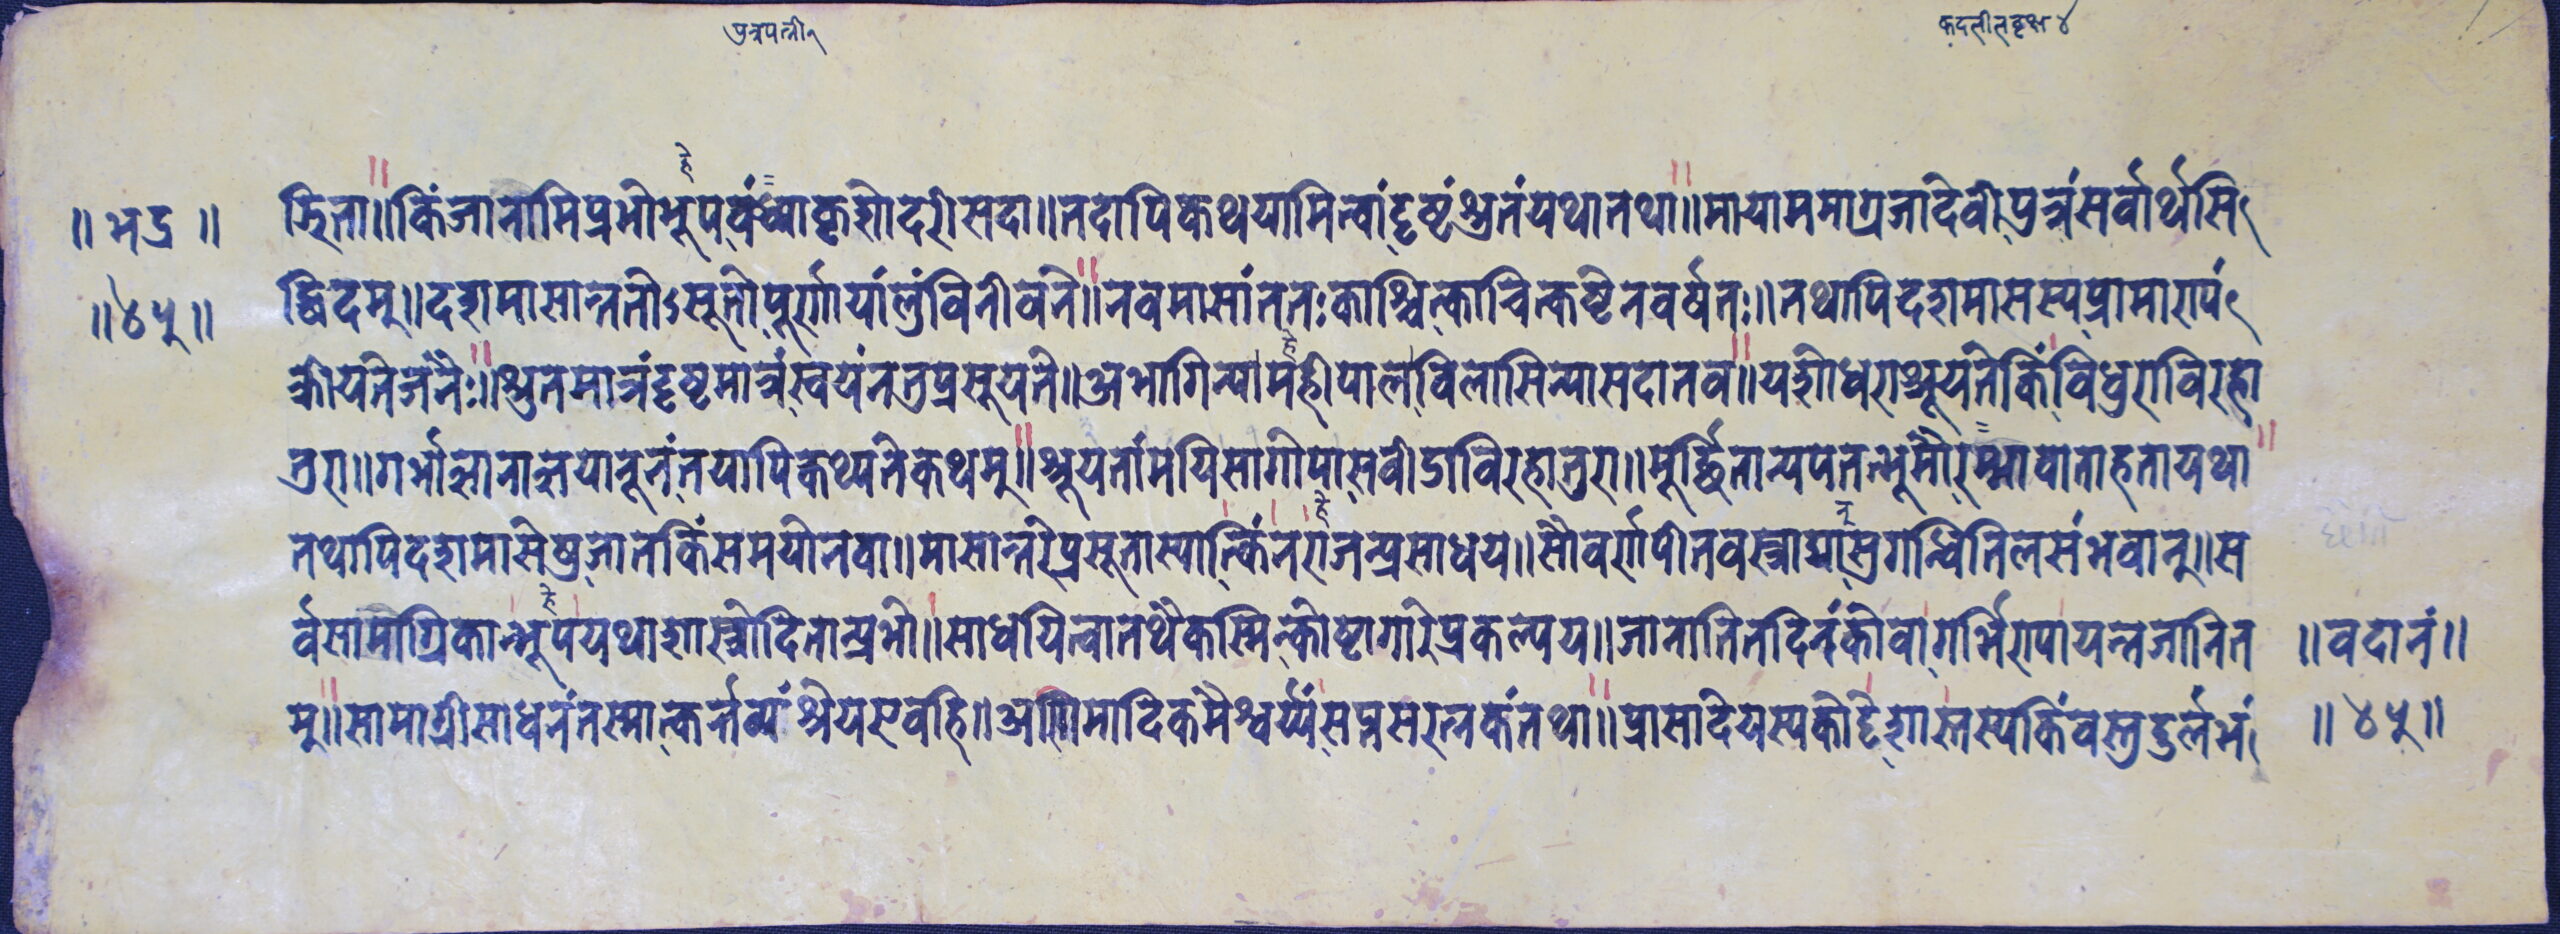 पुत्रपत्नी १
कदलीलवृक्ष ४
॥ भद्र ॥
॥ ४५ ॥
त्रिता॥ किंजानामिप्रभोभूप कृशोदरीसदा॥ तदापिकथयामित्वांदृष्टंश्रुतंयथातथा॥ मायाममाग्रजादेवीपुत्रंसर्वार्थसि
द्धिदम्॥ दशमासान्ततोऽसूतोपूर्णायांलुंविनीवने॥ नवमासांततःकाश्चित्काचित्कष्टेनवर्षतः॥ तथापिदशमासस्यप्रामाण्यं
क्रीयतेजनैः॥ श्रुतमात्रंदृष्टमात्रंस्वयंनतुप्रसूयते॥ अभागिन्यामहीपालविलासिन्यासदातव॥ यशोधराश्रूयतेकिंविधुराविरहा
तुरा॥ गर्भात्सानालयानूनंतयापिकथ्यतेकथम्॥ श्रूयतांमयिसागोपासव्रीडाविरहातुरा॥ मूर्द्धितान्यपतन्भूमौरम्भावाताहतायथा
तथापिदशमासेषुजातकिंसमयोनवा॥ मासान्तरेप्रसूतास्यात्किंनराजन्प्रसाधय॥ सौवर्णपीतवस्त्राद्या गन्धितिलसंभवान्॥ स
र्वसामोग्रिकान्भूपयथाशास्त्रोदितान्प्रभो॥ साधयित्वातथैकस्मिन्कोष्टागारेप्रकल्पय॥ जानातितदिनंकोवागर्भिण्यायन्नजानित
म्॥ सामाग्रीसाधनंतस्मात्कर्तव्यंश्रेयएवहि॥ अणिमादिकमैश्वर्य्यंसप्तसरत्नकंतथा॥ प्रासादेयस्यकोद्देशास्तस्यकिंवस्तुदुर्लभं
॥ वदानं ॥
॥ ४५ ॥